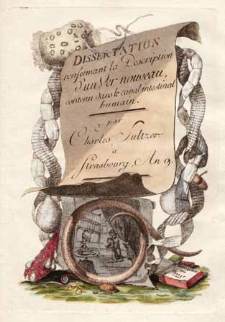 DISSERTATION
renfermant la Description
d'un Ver nouveau,
contenu dans le canal intestinal
humain.
par
Charles Sultzer
à
Strasbourg, An 9.